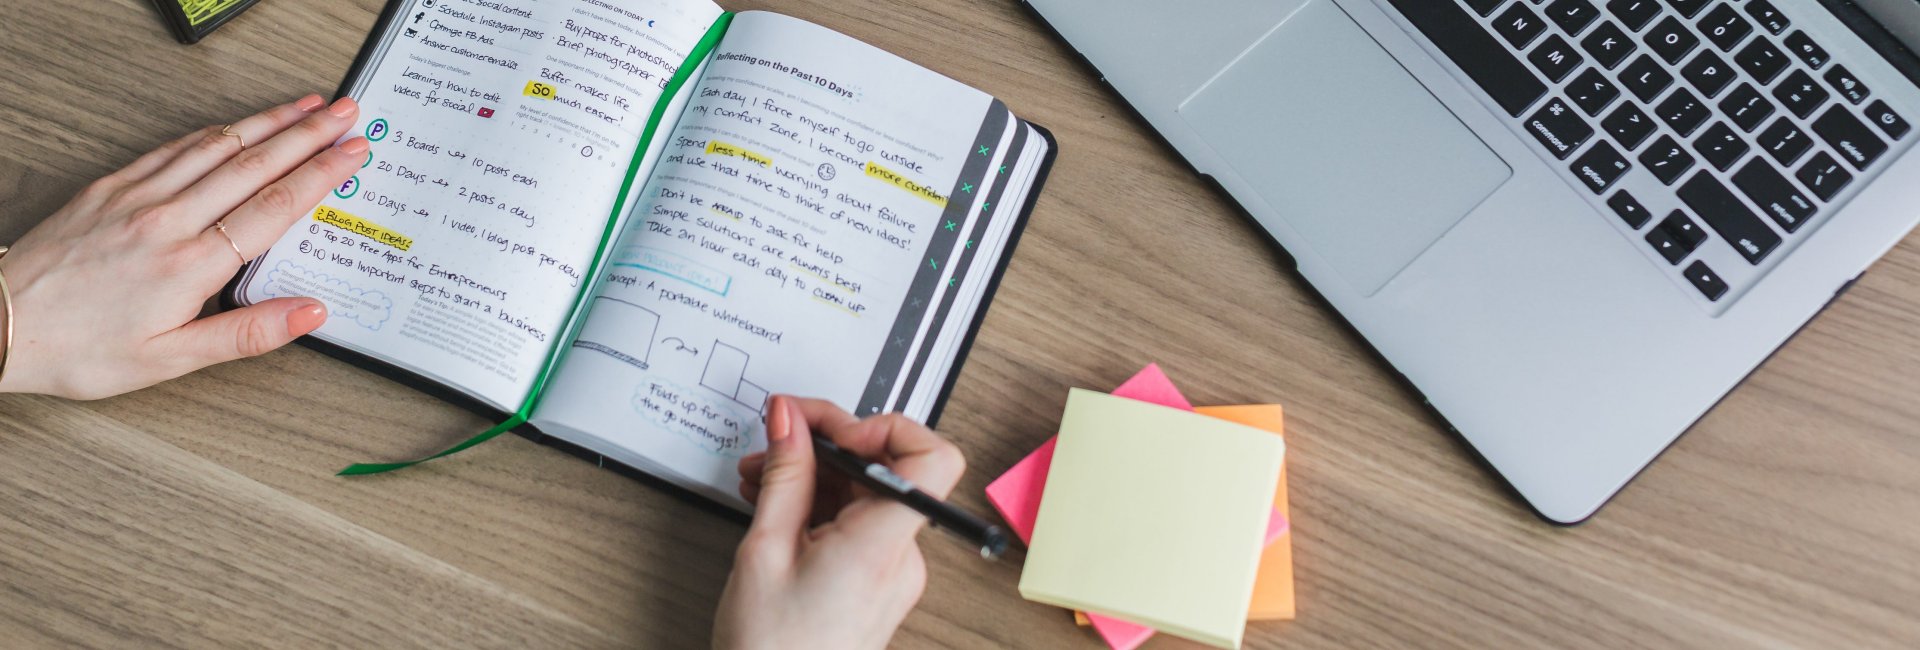 Social content
Schedule Instagram posts
Optimize FB Ads
Answer customer emails
Today's biggest challenge:
Learning how to edit
videos for social
REFLECTING ON TODAY
Buy props for photoshoot
Brief photographer
One important thing I learned today:
Buffer makes life
So much easier!
My level of confidence that I'm on the
right track
1 2 3 4 5 6 7 8 9
P 3 Boards 10 posts each
20 Days 2 posts a day
f 10 Days 1 video, 1 blog post per day
BLOG POST IDEAS:
① Top 20 Free Apps for Entrepreneurs
② 10 Most Important steps to start a business
"Strength and growth come only through
continuous effort and struggle."
Napoleon
Reflecting on the Past 10 Days
Each day I force myself to go outside
my comfort zone, I become more confident
Spend less time worrying about failure
and use that time to think of new ideas!
Don't be AFRAID to ask for help
Simple solutions are ALWAYS best
Take an hour each day to CLEAN UP
NEW PRODUCT IDEA!
concept: A portable whiteboard
Folds up for on
the go meetings!
N
M
J
K
L
I
O
P
command
option
delete
return
shift